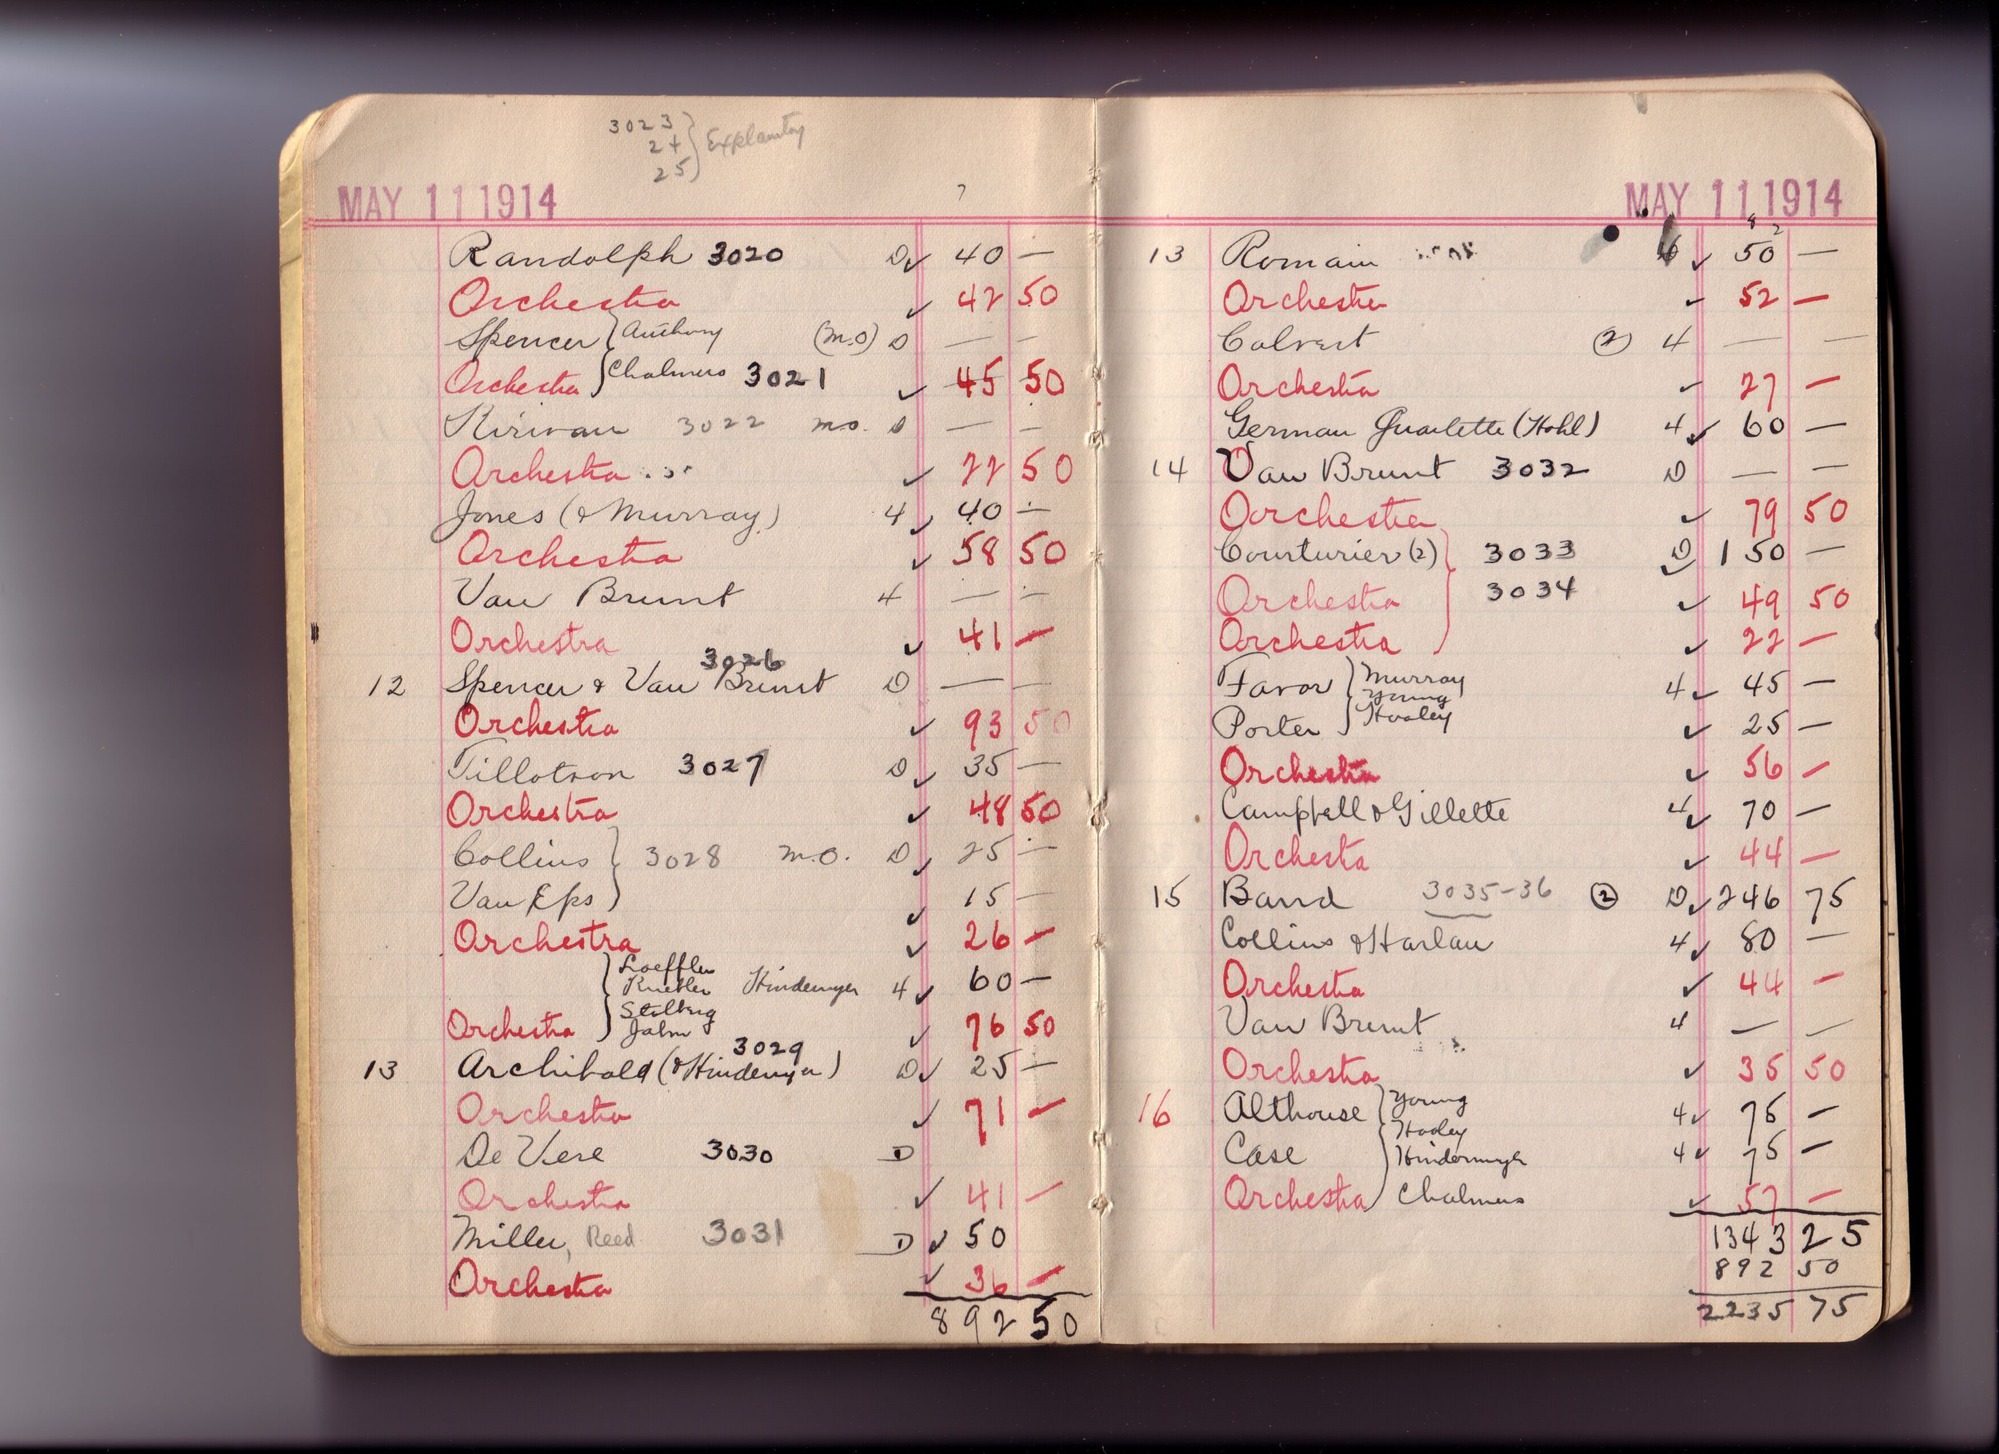 3023 }
24 } Explanatory
25 }
MAY 11 1914
Randolph 3020 D ✓ 40 —
Orchestra ✓ 42 50
Spencer } Anthony (M.O) D — —
Orchestra } Chalmers 3021 ✓ 45 50
Kirwan 3022 mo. D — —
Orchestra ✓ 22 50
Jones (& Murray) 4 ✓ 40 —
Orchestra ✓ 58 50
Van Brunt 4 — —
Orchestra ✓ 41 —
3026
12 Spencer & Van Brunt D — —
Orchestra ✓ 93 50
Tillotson 3027 D ✓ 35 —
Orchestra ✓ 48 50
Collins } 3028 M.O. D ✓ 25 —
Van Eps } ✓ 15 —
Orchestra ✓ 26 —
Loeffler
Hindemyer 4 ✓ 60 —
Stilberg
Orchestra Jahn ✓ 76 50
3029
13 Archibald (& Hindemyer) D ✓ 25 —
Orchestra ✓ 71 —
De Vere 3030 D
Orchestra ✓ 41 —
Miller, Reed 3031 D ✓ 50
Orchestra ✓ 36 —
892 50
MAY 11 1914
13 Romain ✓ 50 —
Orchestra ✓ 52 —
Calvert (2) 4 — —
Orchestra ✓ 27 —
German Quartette (Hohl) 4 ✓ 60 —
14 Van Brunt 3032 D — —
Orchestra ✓ 79 50
Courturier (2) } 3033 D ✓ 150 —
Orchestra } 3034 ✓ 49 50
Orchestra } ✓ 22 —
Favor } Murray 4 ✓ 45 —
Young
Porter } Hooley ✓ 25 —
Orchestra ✓ 56 —
Campbell & Gillette 4 ✓ 70 —
Orchestra ✓ 44 —
15 Band 3035-36 (2) D ✓ 246 75
Collins & Harlan 4 ✓ 80 —
Orchestra ✓ 44 —
Van Brunt 4 — —
Orchestra ✓ 35 50
16 Althouse } Young 4 ✓ 75 —
Hooley
Case } Hindermyer 4 ✓ 75 —
Orchestra } Chalmers ✓ 57 —
1343 25
892 50
2235 75